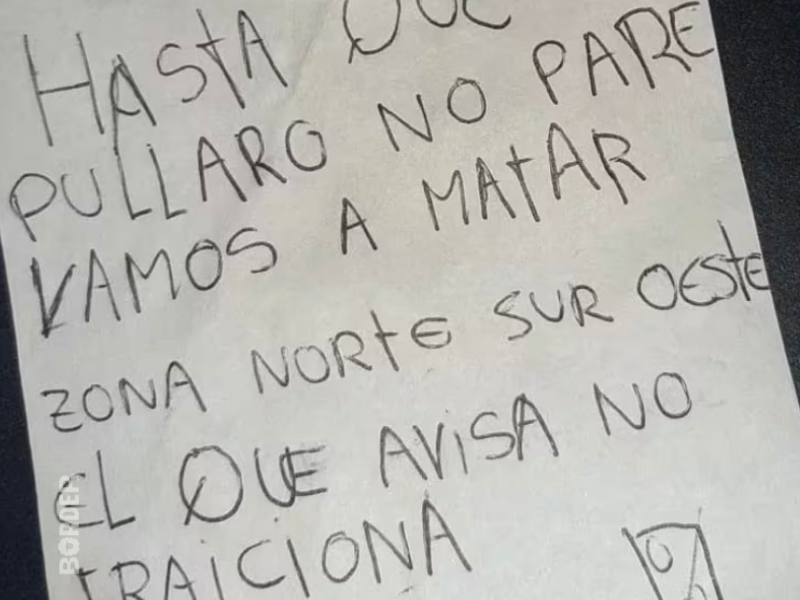 HASTA QUE
PULLARO NO PARE
VAMOS A MATAR
ZONA NORTE SUR OESTE
EL QUE AVISA NO
TRAICIONA
BORDER